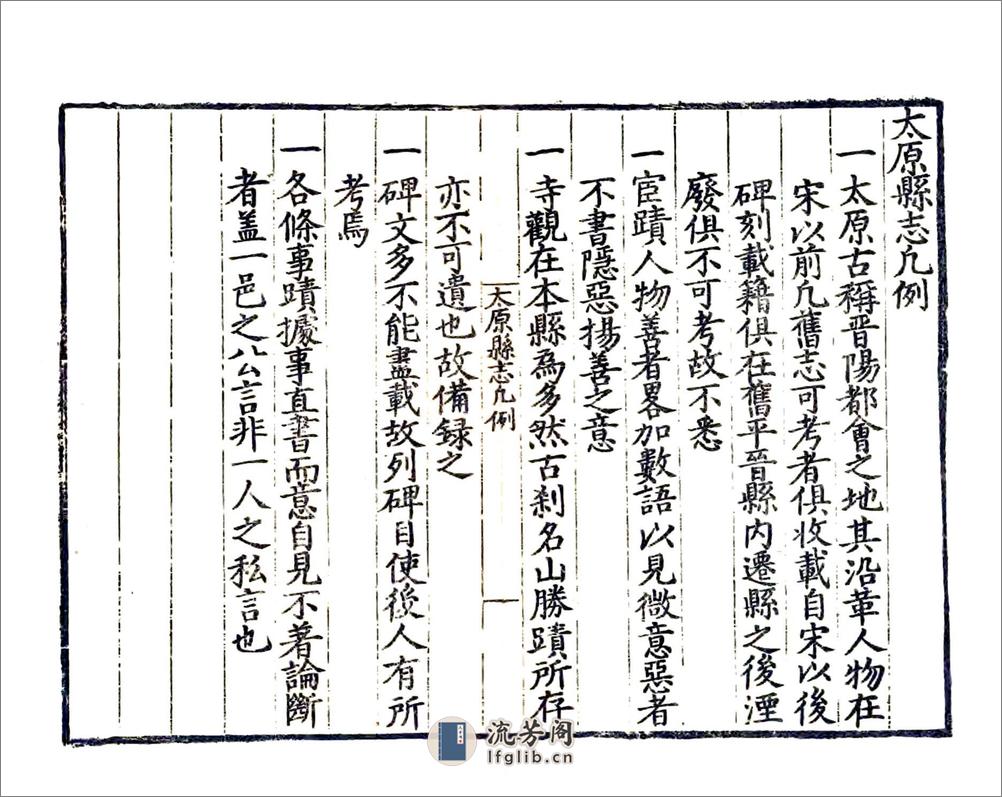 太原縣志凢例
一太原古稱晋陽都會之地其沿革人物在
宋以前凢舊志可考者俱收載自宋以後
碑刻載籍俱在舊平晉縣内遷縣之後湮
廢俱不可考故不悉
一宦蹟人物善者畧加數語以見微意惡者
不書隱惡揚善之意
一寺觀在本縣爲多然古刹名山勝蹟所存
太原縣志凢例
一
亦不可遺也故備録之
一碑文多不能盡載故列碑目使後人有所
考焉
一各條事蹟據事直書而意自見不著論斷
者盖一邑之公言非一人之私言也
流芳阁
lfglib.cn